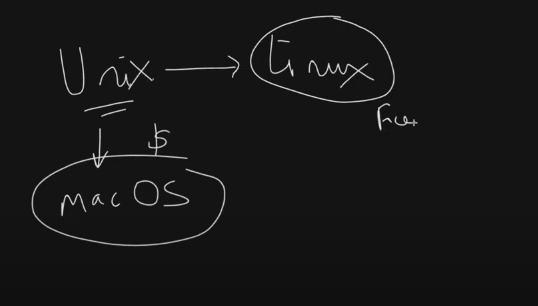 Unix → Linux
Free
$
mac OS